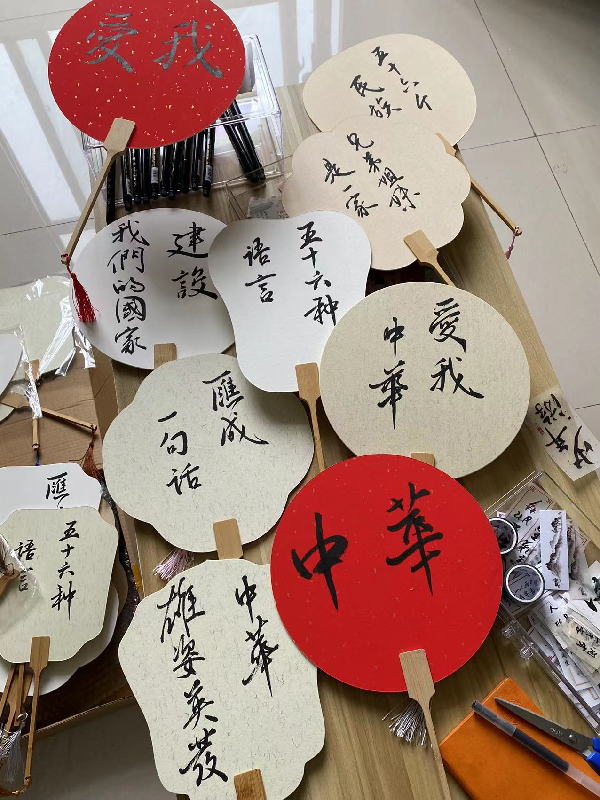 愛我
五十六个
民族
兄弟姐妹
是一家
建設
我們的國家
五十六种
语言
愛我
中華
匯成
一句话
中華
中華
雄姿英發
匯
五十六种
语言